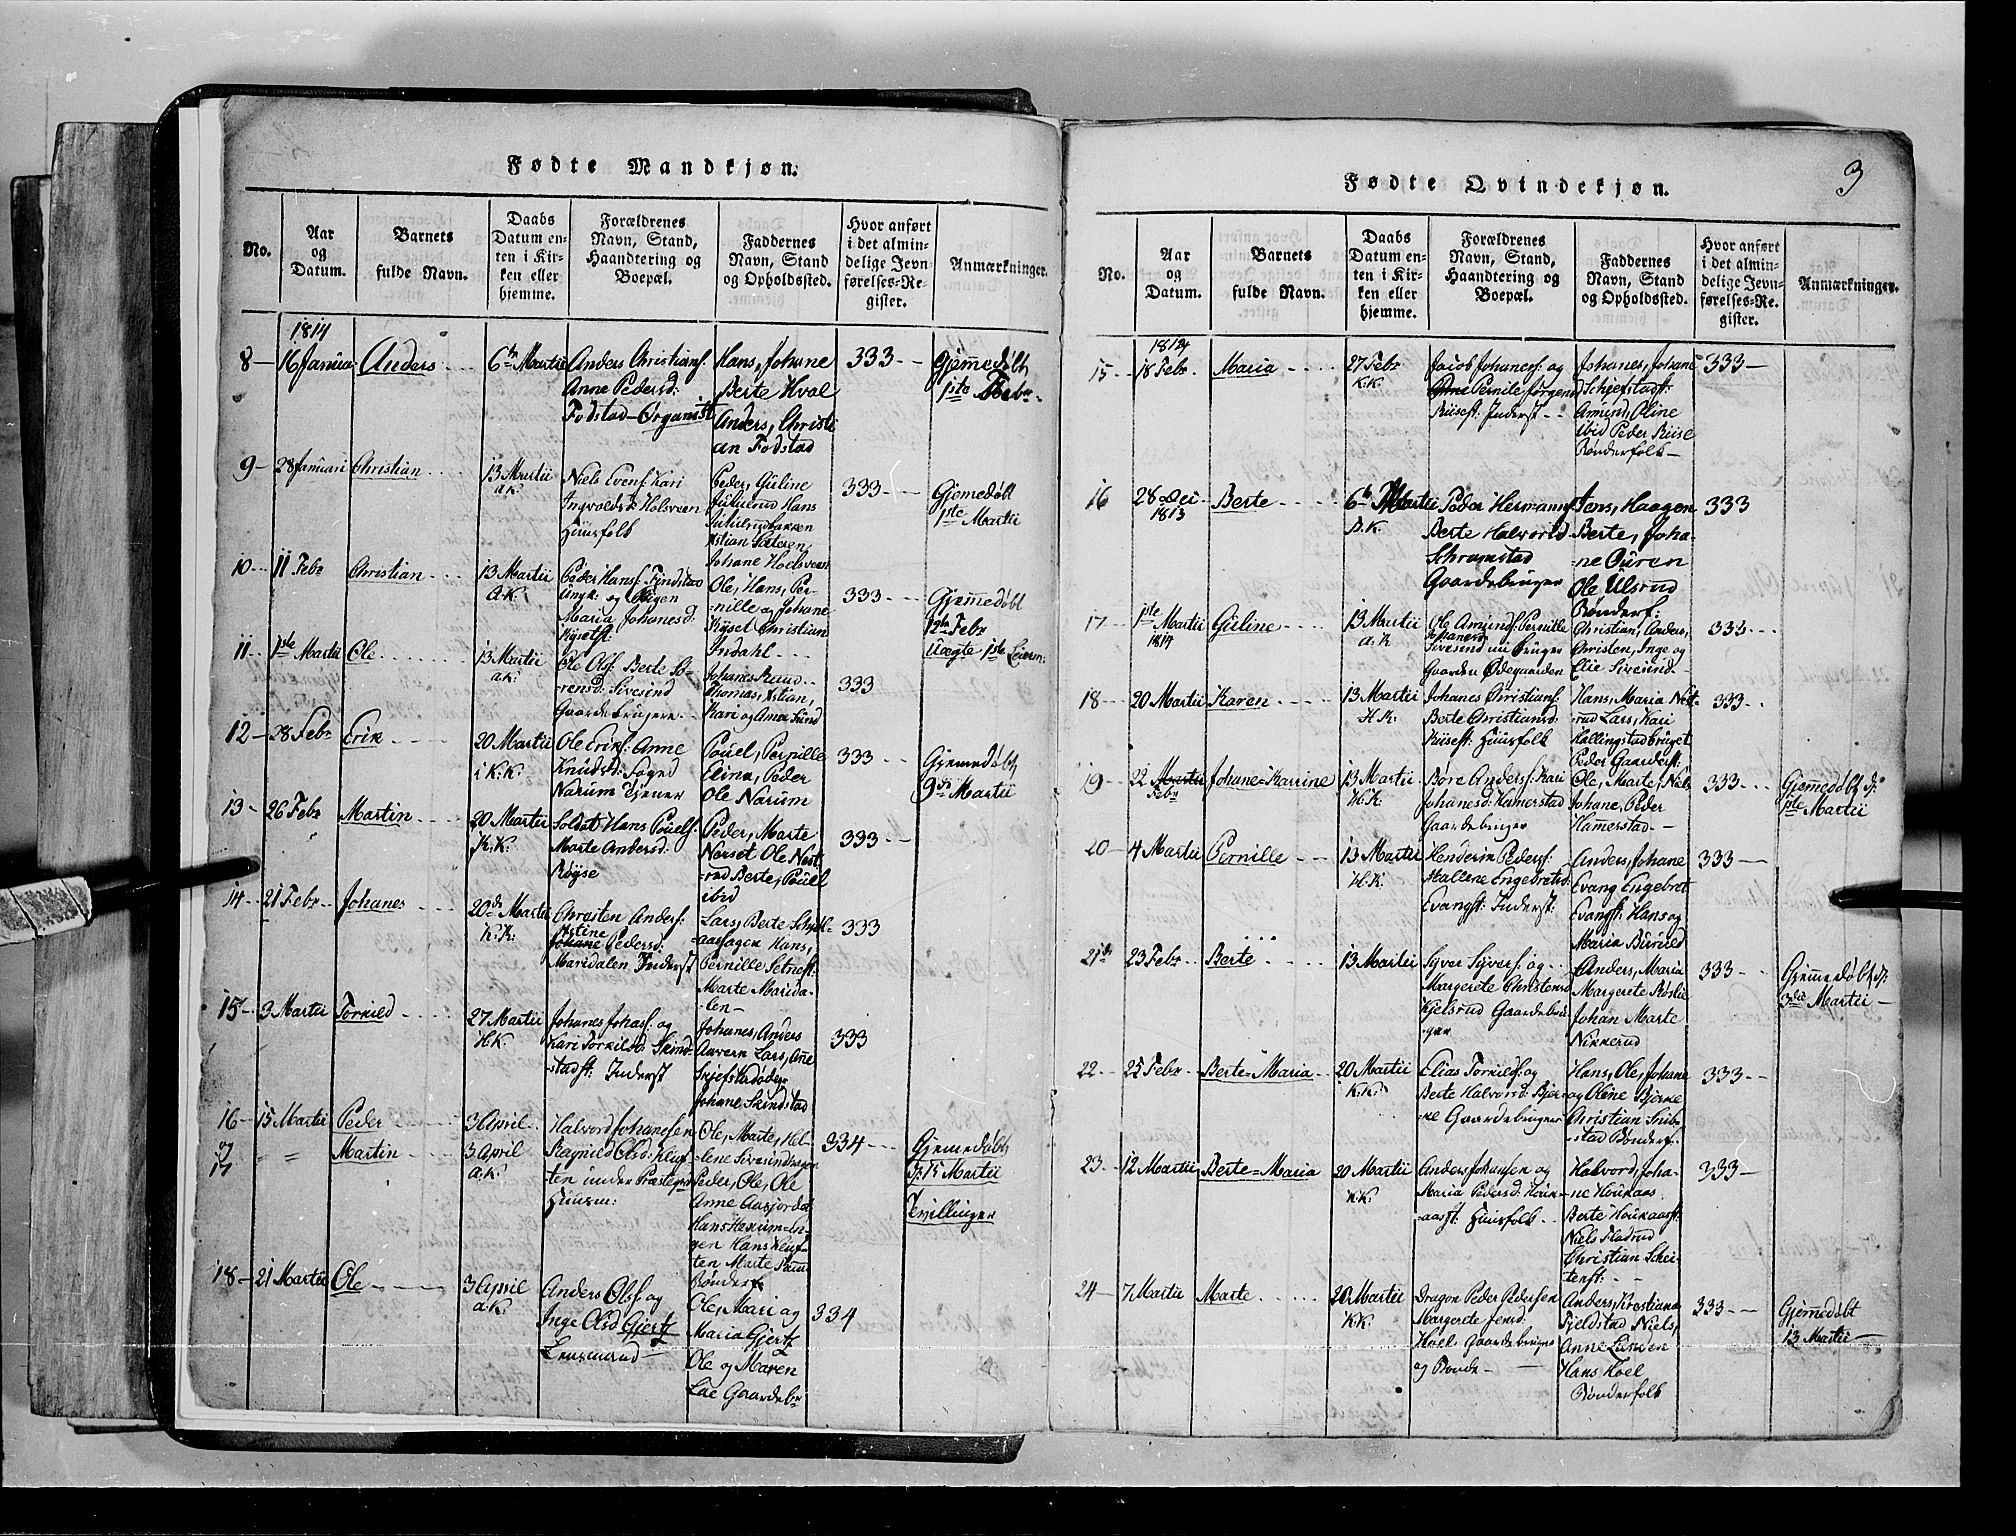 Fødte Mandkjøn.
No.
Aar
og
Datum.
Barnets
fulde Navn.
Daabs
Datum en-
ten i Kir-
ken eller
hjemme.
Forældrenes
Navn, Stand,
Haandtering og
Boepæl.
Faddernes
Navn, Stand
og Opholdssted.
Hvor anført
i det almin-
delige Jevn-
førelses-Re-
gister.
Anmærkninger.
1814
8 — 16 Januar Anders
6te Martii
Anders Christians:
Anne Pedersd:
Fodstad – Organist
Hans, Johane
Berte Hval
Anders, Christi
an Fodstad
333
Gjemedøbt
1ste Febr.
9 — 28 Januari Christian
13 Martii
a.K.
Niels Evens: Kari
Ingvoldsd: Holsveen
Huusfolk
Peder, Guline
Jululrud Hans
Kstian Sæteren,
Johane Hoelsveen
333
Gjemedøbt
1ste Martii
10 11 Febr Christian
13 Martii
a.K.
Peder Hans: Findstad
Ungk. og Pigen
Maria Johanesd:
Ryset:
Ole, Hans, Per-
nille og Johane
Ryset Christian
Indahl
333
Gjemedøbt
12te Febr
Uægte 1ste Leierm:
11 1ste Martii Ole
13 Martii
a.K.
Ole Ols: Berte So-
rensd: Sivesind
Gaardebrugere
Johanes Ruud
Thomas, Kstian,
Kari og Anne Sund
333
12 — 28 Febr Erik
20 Martii
i K.K.
Ole Eriks: Anne
Knudsd: Foged
Narum Tjener
Pouel, Pernille
Eline, Peder
Ole Narum
333
Gjemedøbt
9de Martii
13 — 26 Febr Martin
20 Martii
K.K.
Soldat Hans Pouels:
Marte Andersd:
Røyse
Peder, Marte
Nerset Ole Nest
rud Berte, Pouel
ibid
333
14 — 21 Febr Johanes
20de Martii
K.K.
Christen Anders:
Kstine
Johane Pedersd:
Maridalen Inderst
Lars, Berte
Hans,
Pernille
Marte Marida-
len
333
15 — 3 Martii Torkild
27 Martii
H.K.
Johanes Johas: og
Kari Torkilsd: Skind-
stads: Inderst
Johanes, Anders
Lars, Ane
Johane Skindstad
333
16 — 15 Martii Peder
3 April
og
17 Martin
3 April
a.K.
Halvord Johanesen
Ragnild Olsd:
ten under Præstegr
Huusm:
Ole, Marte, Hel-
lene
Peder, Ole, Ole
Anne
Hans
gen Hans
ten Marte
Bønderf
334
Gjemedøbt
15 Martii
Tvillinger
18 — 21 Martii Ole
3 April
a.K.
Anders Ols: og
Inge Olsd Gjertz
Lensmand
Ole, Mari og
Maria Gjertz
Ole og Maren
Lae Gaardebr
334
3
Fødte Qvindekjøn.
No.
Aar
og
Datum.
Barnets
fulde Navn.
Daabs
Datum en-
ten i Kir-
ken eller
hjemme.
Forældrenes
Navn, Stand,
Haandtering og
Boepæl.
Faddernes
Navn, Stand
og Opholdssted.
Hvor anført
i det almin-
delige Jevn-
førelses-Re-
gister.
Anmærkninger.
1814
15 18 Febr Maria
27 Febr
K.K.
Jacob Johanes: og
Pernile Jørgens
Riises: Inderst
Johanes, Johane
Schiefstad:
Amund, Oline
ibid Peder Riise
Bønderfolk
333
16 28 Dec Berte
1813
6te Martii
K.
Peder Hermans:
Berte Halvorsd
Schramstad
Gaardebruger
Jens, Haagen
Berte, Joha-
ne Ouren
Ole Ulsrud
Bønderf:
333
17 1ste Martii Guline
1814
13 Martii
a.K
Ole Amunds: Pernille
Sivesind nu bruger
Gaarden Ødegaarden
Christian, Anders,
Christen, Inge og
Elie Sivesind
333
18 20 Martii Karen
13 Martii
H.K.
Johanes Christians:
Berte Christiansd:
Riises: Huusfolk
Hans, Maria Nest-
rud Lars, Kari
Hallingstadbruget
Peder Gaarder:
333
19 22 Martii Johane=Karrine
Febr
13 Martii
H.K.
Bore Anders: Kari
Johanesd: Hamerstad
Gaardebruger
Ole, Marte, Niels
Johane, Peder
Hammerstad
333
Gjemedøbt d:
1ste Martii
20 4 Martii Pernille
13 Martii
H.K.
Henderik Peders:
Mallene Engebretsd:
Evangs: Inderst:
Anders, Johane
Evang Engebret
Evangs: Hans og
Maria Burud
333
21de 23 Febr Berte
13 Martii
Syver Syvers: og
Margerete Christensd
Kjelsrud Gaardebru
ger
Anders, Maria
Margerete Røslie
Johan Marte
Nikkerud
333
Gjemedøbt d:
3die Martii
22 25 Febr Berte=Maria
20 Martii
K.K.
Elias Torkilds: og
Berte Halvorsd: Bjer-
ke Gaardebruger
Hans, Ole, Johane
og Oline Bjerke
Christian
stad Bønderf:
333
23 12 Martii Berte=Maria
20 Martii
K.K.
Anders Johansen og
Maria Pedersd: Houk-
aas: Huusfolk
Halvord, Joha-
ne Houkaas
Berte Houkaas:
Niels Kladrud
Christian
333
24 7 Martii Marte
20 Martii
K.K.
Dragon Peder Pedersen
Margerete Jensd:
Hoel Gaardebruger
og Bonde
Anders, Kristiane
Fjeldstad Niels,
Anne Lunden
Hans Hoel
Bønderfolk
333
Gjemedøbt
13 Martii